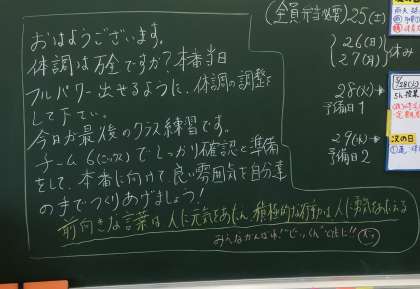 おはようございます。
体調は万全ですか？本番当日
フルパワー出せるように、体調の調整を
して下さい。
今日が最後のクラス練習です。
チーム6(シックス)でしっかり確認と準備
をして、本番に向けて良い雰囲気を自分達
の手でつくりあげましょう！
前向きな言葉は人に元気をあたえ、積極的な行動は人に勇気をあたえる
みんながんばれ!!
(全員弁当必要) 25(土)
26(日)
27(月)
休み
28(火)→
予備日1
29(水)→
予備日2
次の日